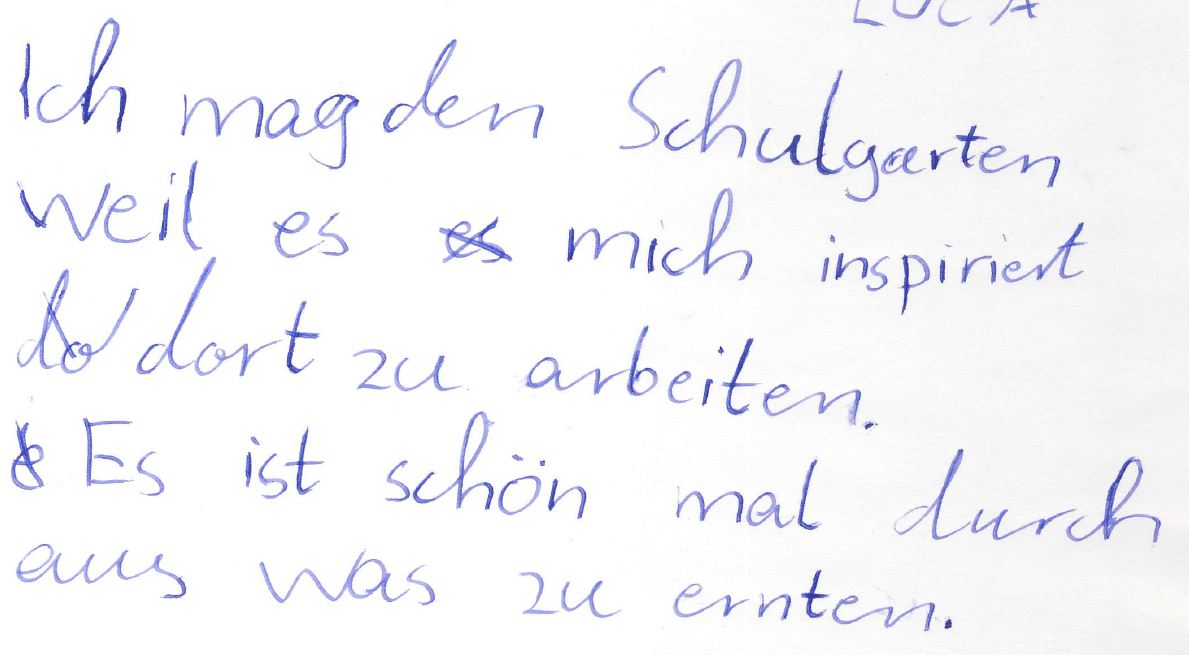 LUCA
Ich mag den Schulgarten
weil es mich inspiriert
dort zu arbeiten.
Es ist schön mal durch
aus was zu ernten.